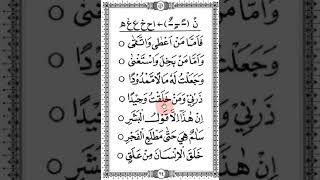 فَاَمَّا مَنْ اَعْطٰى وَاتَّقٰى
وَاَمَّا مَنْ بَخِلَ وَاسْتَغْنٰى
وَجَعَلْتُ لَهٗ مَالًا مَّمْدُوْدًا
ذَرْنِيْ وَمَنْ خَلَقْتُ وَحِيْدًا
اِنْ هٰذَا اِلَّا قَوْلُ الْبَشَرِ
سَلٰمٌ هِيَ حَتّٰى مَطْلَعِ الْفَجْرِ
خَلَقَ الْاِنْسَانَ مِنْ عَلَقٍ